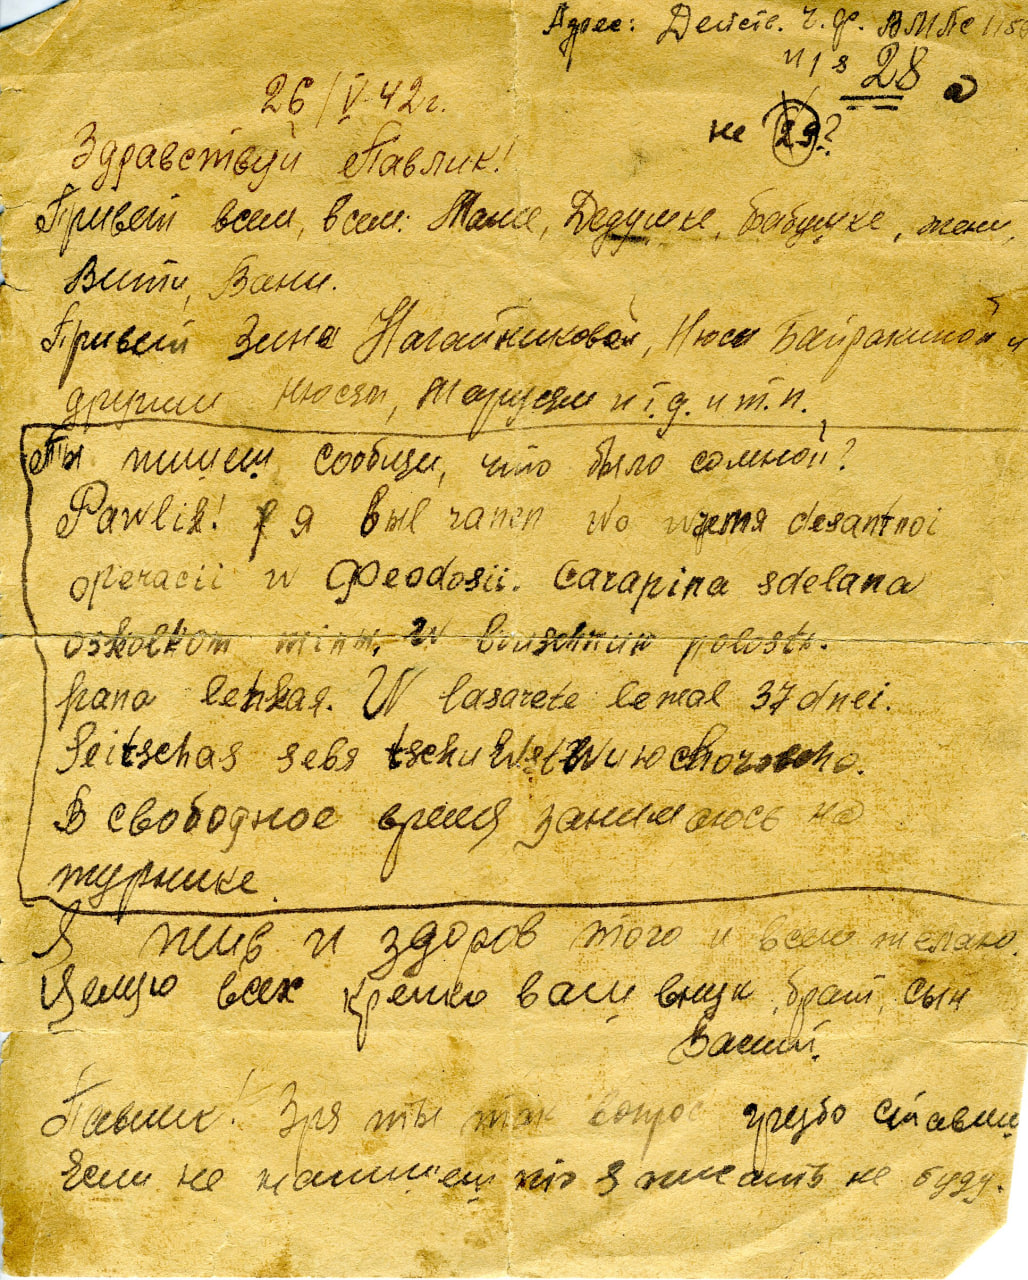 Адрес: Действ. ч. ф. ВМПС
п/я 28 а
не 29?
26/V-42г.
Здравствуй Павлик!
Привет всем, всем: Маме, Дедушке, бабушке, жени,
Вити, Вани.
Привет Зине Нагайниковой, Нюси Байракиной и
другим Нюсям, Марусям и т.д. и т.п.
Ты пишеш, сообщи, что было сомной?
Pawlik! я был ranen wo wremя desantnoi
operacii w Feodosii. Carapina sdelana
oskolkom minы, w bruschnuю polostь.
Rana lehkaя. W lasarete leжal 37 dnei.
Seitschas sebя tschuwstwuю choroscho.
В свободное время занимаюсь на
турнике.
Я жив и здоров того и всем желаю.
Целую всех крепко ваш внук, брат, сын
Васили́й.
Павлик! Зря ты так вопрос грубо ставиш
Если не напишеш то я писать не буду.